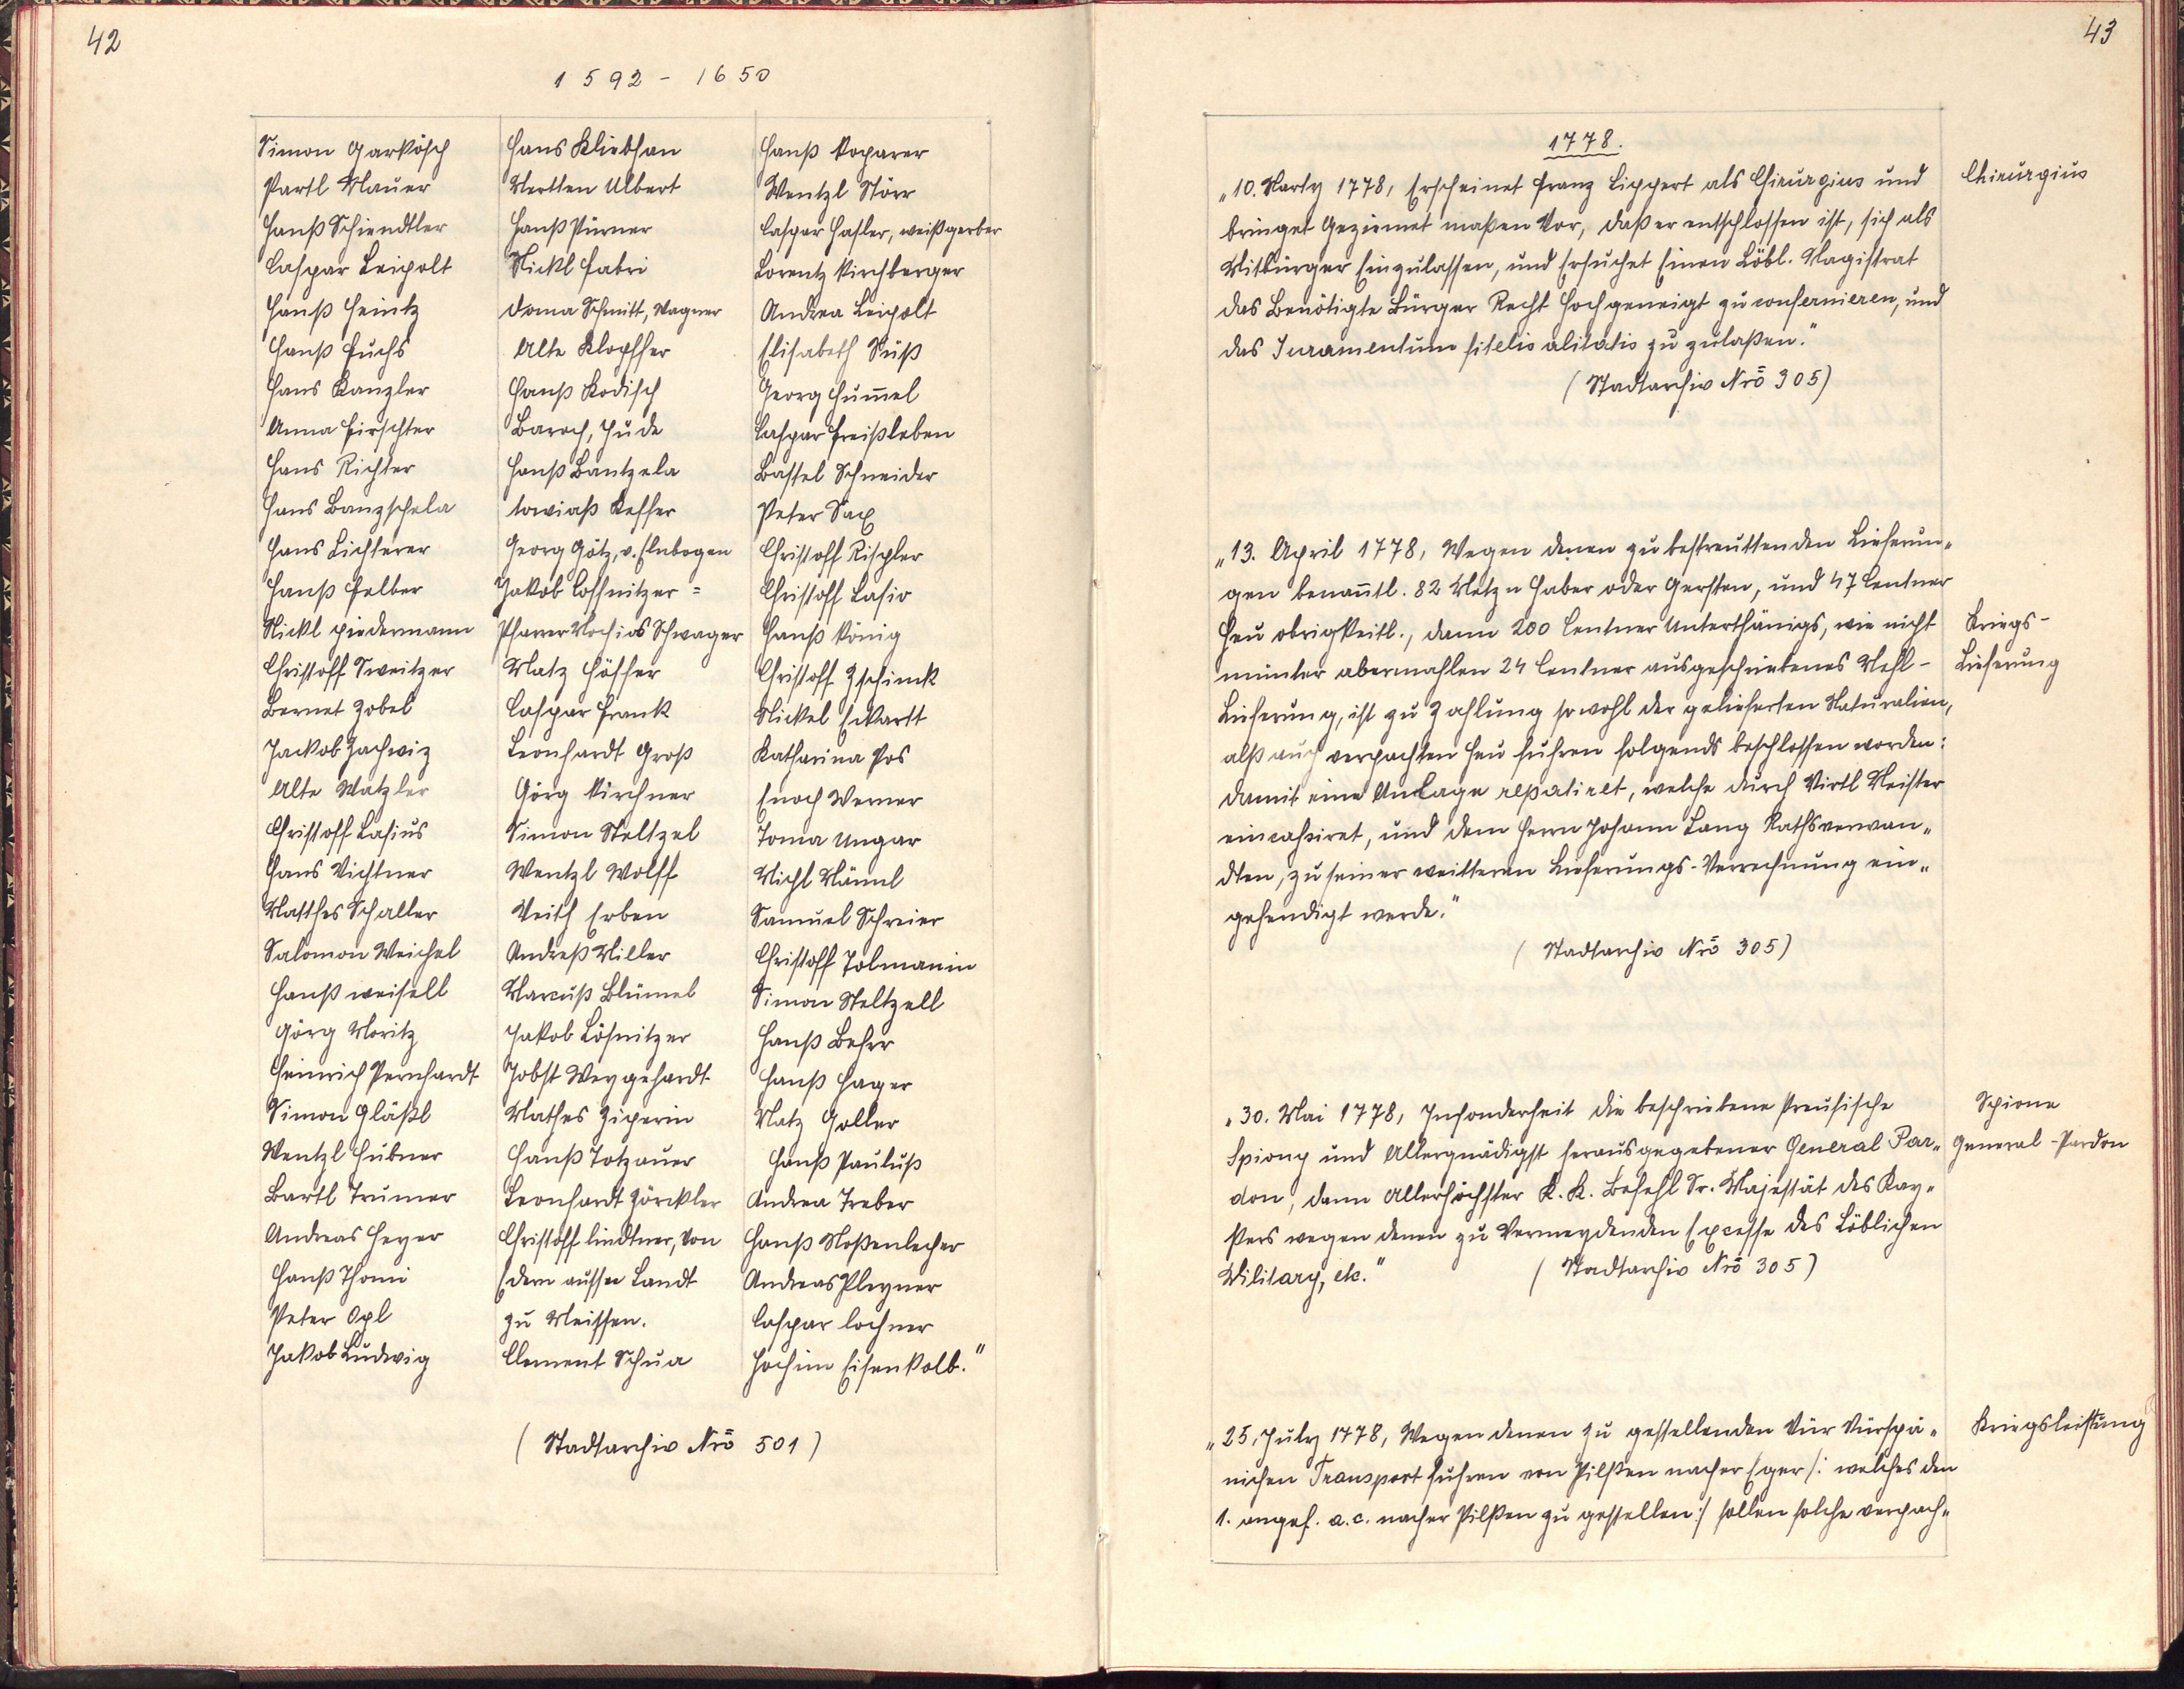 42
1592 - 1650
Simon Garkösch
Partl Mauer
Hanß Schiendtler
Caspar Leipolt
Hanß Heintz
Hanß Fuchs
Hans Kanzler
Anna Hirschter
Hans Richter
Hans Banzschela
Hans Lichterer
Hanß Felber
Nickl Piedermann
Christoff Sweitzer
Bernet Zobel
Jackob Zachwiz
Alte Watzler
Christoff Lasius
Hans Vichtner
Matthes Schaller
Salomon Weichel
Hanß weisell
Görg Moritz
Heinrich Pernhardt
Simon Gläßl
Wentzl Hübner
Bartl Trumer
Andreas Heyer
Hanß Thomi
Peter Opl
Jakob Ludwig
Hans Kliebhan
Mertten Albert
Hanß Pürner
Nickl Fabri
Doma Schmitt, Wagner
Alte Klopffer
Hanß Kodisch
Baroch, Jude
Hanß Bantzela
towiaß Keffer
Georg Götz, v. Elnbogen
Jakob Coffnitzer =
Pfarrer Mochios Schwager
Matz Höffer
Caspar Frank
Leonhardt Groß
Görg Kirchner
Simon Steltzel
Wentzl Wolff
Veith Erben
Andreß Miller
Marcuß Blümel
Jakob Lösnitzer
Jobst Weygehardt
Mathes Ziperin
Hanß Totzauer
Leonhardt Zörckler
Christoff lindtner, von
Edem ausser Landt
zu Meissen.
Clement Schua
Hanß Koparer
Wentzl Störr
Caspar Hasler, weißgerber
Lorentz Kirchberger
Andrea Leipolt
Elisabeth Süß
Georg Hum̄el
Caspar Freißleben
Bastel Schneider
Peter Sax
Christoff Rischler
Christoff Lasio
Hanß König
Christoff Zschimk
Nickel Eckartt
Katharina Pos
Enoch Werner
Toma Ungar
Michl Männl
Samuel Schreier
Christoff Tolmanin
Simon Steltzell
Hanß Behrr
Hanß Hager
Matz Goller
Hanß Pauluß
Andrea Treber
Hanß Moßenlecher
Andreas Pleyner
Caspar lochner
Jochim Eisenkolb."
(Stadtarchiv Nrō 501)
43
1778.
„10. Marty 1778, Erscheinet Franz Lippert als Chieurgius und
bringet Geziemet maßen Vor, daß er entschlossen ist, sich als
Mitbürger Einzulassen, und Ersuchet Einen Löbl. Magistrat
das Benötigte Bürger Recht Hochgeneigt zu confernieren, und
das Juramentum fitelis alitatis zu zulaßen."
(Stadtarchiv Nrō 305)
Chieurgius
„13. April 1778, Wegen denen zu bestreuttenden Lieferun„
gen benan̄tl. 82 Metzn Haber oder Gersten, und 47 Centner
Heu obrigkeitl., dann 200 Centner Unterthänigs, wie nicht
münter abermahlen 24 Centner ausgeschriebenes Mehl-
Lieferung, ist zu Zahlung sowohl der gelieferten Naturalien,
alß auch verpachten Heu fuhren folgends beschlossen worden:
damit eine Anlage repatiret, welche durch Virtl Meister
eincahsiret, und dem Herrn Johann Lang Rathsverwan„
dten, zu seiner weitteren Lieferungs-Verrechnung ein„
gehendigt werde."
(Stadtarchiv Nrō 305)
Kriegs-
Lieferung
„30. Mai 1778, Insonderheit die beschriebene Preusische
Spiony und Allergnädigst herausgegebener General Par„
don, dann Allerhöchster K. K. Befehl Sr. Majestät des Kay„
sers wegen denen zu Vermeydenden Excesse des Löblichen
Military, etc." (Stadtarchiv Nrō 305)
Spione
General-Pardon
„25. July 1778, Wegen denen zu gestellenden Vür Vürspä„
nichen Transport fuhren von Pilßen nacher Eger /: welches den
1. angef. a. c. nacher Pilßen zu gestellen:/ sollen solche verpach„
Kriegsleistung